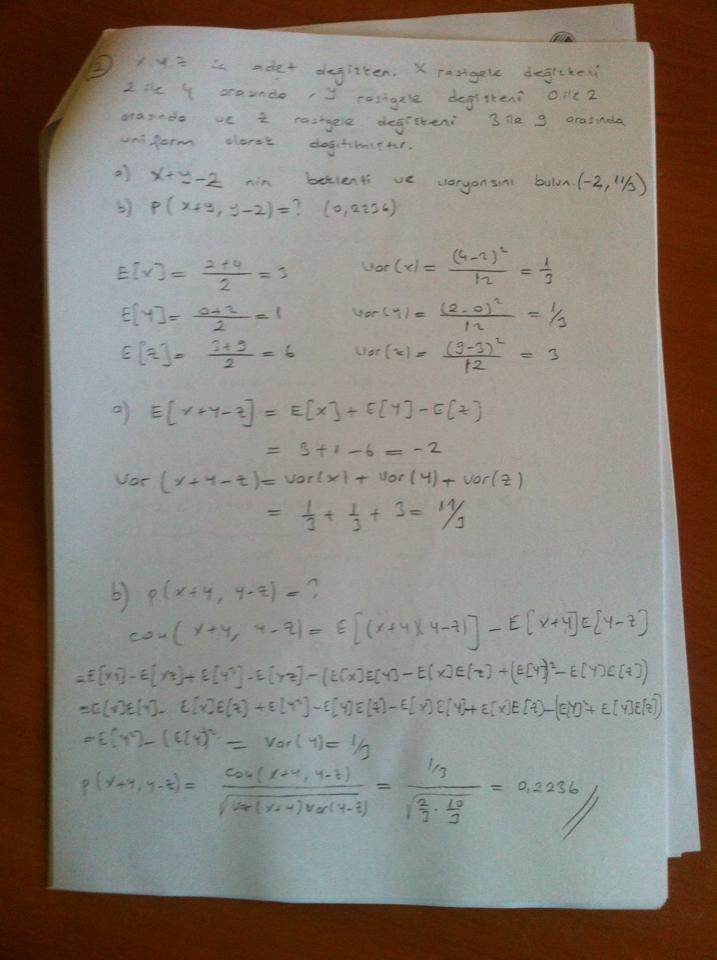 2) X, Y, Z üç adet değişken. X rastgele değişkeni
2 ile 4 arasında, Y rastgele değişkeni 0 ile 2
arasında ve Z rastgele değişkeni 3 ile 9 arasında
uniform olarak dağıtılmıştır.
a) X+Y-Z nin beklenti ve varyansını bulun. (-2, 11/3)
b) P(X+Y, Y-Z)=? (0,2236)
E[X] = (2+4)/2 = 3 Var(X) = (4-2)²/12 = 1/3
E[Y] = (0+2)/2 = 1 Var(Y) = (2-0)²/12 = 1/3
E[Z] = (3+9)/2 = 6 Var(Z) = (9-3)²/12 = 3
a) E[X+Y-Z] = E[X] + E[Y] - E[Z]
= 3+1-6 = -2
Var(X+Y-Z) = Var(X) + Var(Y) + Var(Z)
= 1/3 + 1/3 + 3 = 11/3
b) P(X+Y, Y-Z) = ?
cov(X+Y, Y-Z) = E[(X+Y)(Y-Z)] - E[X+Y]E[Y-Z]
= E[XY] - E[XZ] + E[Y²] - E[YZ] - (E[X]E[Y] - E[X]E[Z] + (E[Y])² - E[Y]E[Z])
= E[X]E[Y] - E[X]E[Z] + E[Y²] - E[Y]E[Z] - E[X]E[Y] + E[X]E[Z] - (E[Y])² + E[Y]E[Z])
= E[Y²] - (E[Y])² = Var(Y) = 1/3
P(X+Y, Y-Z) = cov(X+Y, Y-Z)/√(Var(X+Y)Var(Y-Z)) = (1/3)/√(2/3 · 10/3) = 0,2236 //